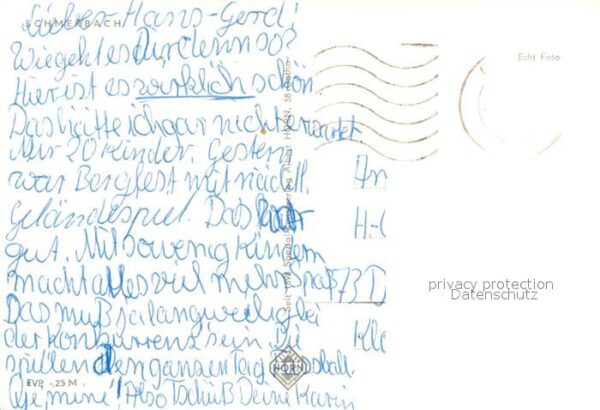 Lieber Hans-Gerd!
SCHMERBACH
Wie geht es Dir denn so?
Hier ist es wirklich schön.
Das hätte ich gar nicht erwartet.
Nur 20 Kinder. Gestern
war Bergfest mit
Geländespiel. Das war
gut. Mit so wenig Kindern
macht alles viel mehr Spaß
Das muß ja langweilig bei
der Konkurrenz sein. Die
spielen den ganzen Tag
Oje, mine! Also Tschüß Deine Karin
EVP -.25 M
Echt Foto
HORN
An
H.-G
73 D
Kla
privacy protection
Datenschutz